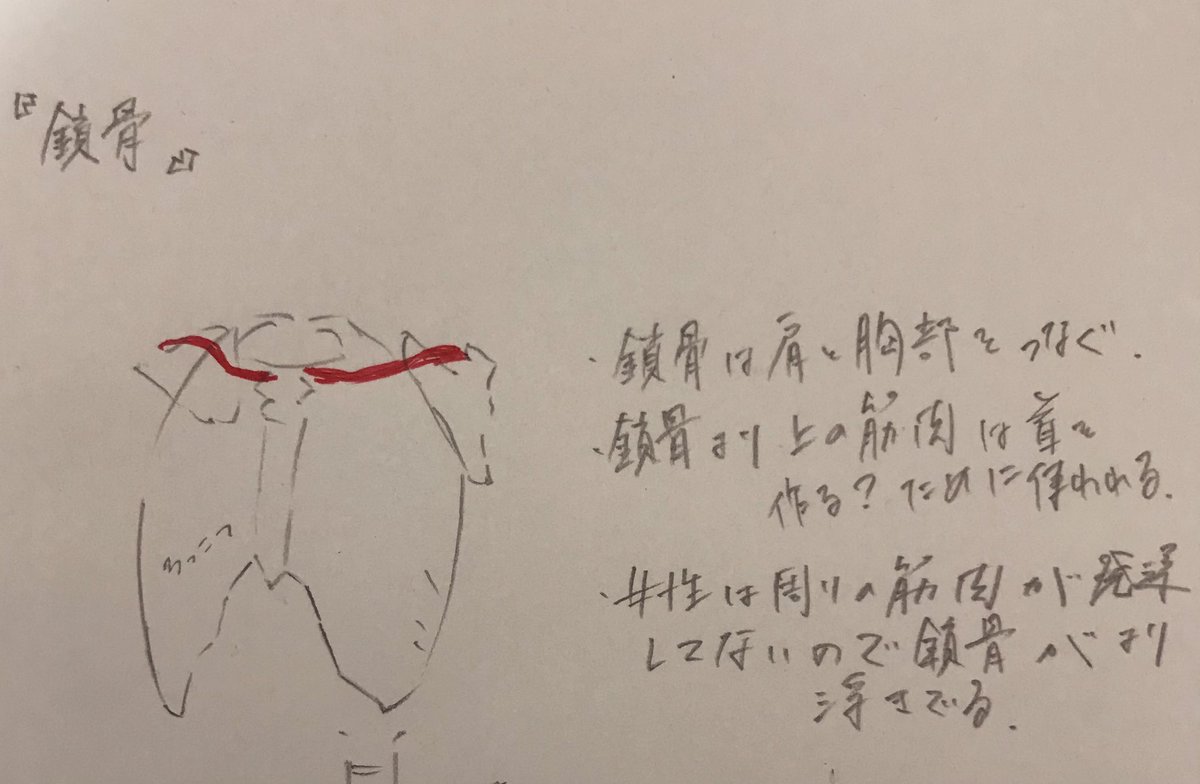 『鎖骨』
ろっこつ
・鎖骨は肩と胸部をつなぐ.
・鎖骨より上の筋肉は首を
作る?ために使われる.
・女性は周りの筋肉が発達
してないので鎖骨がより
浮きでる.